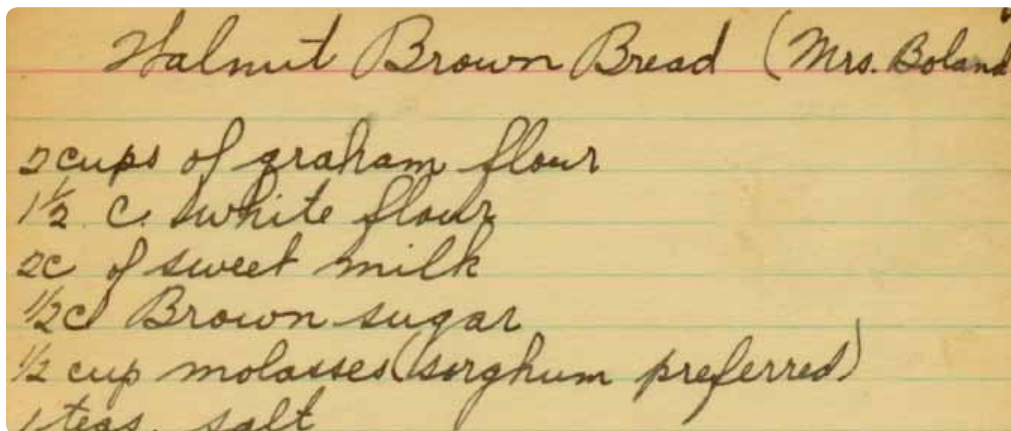 Walnut Brown Bread (Mrs. Boland
2 cups of graham flour
1½ c. white flour
2c of sweet milk
½c Brown sugar
½ cup molasses (sorghum preferred)
1 teas. salt